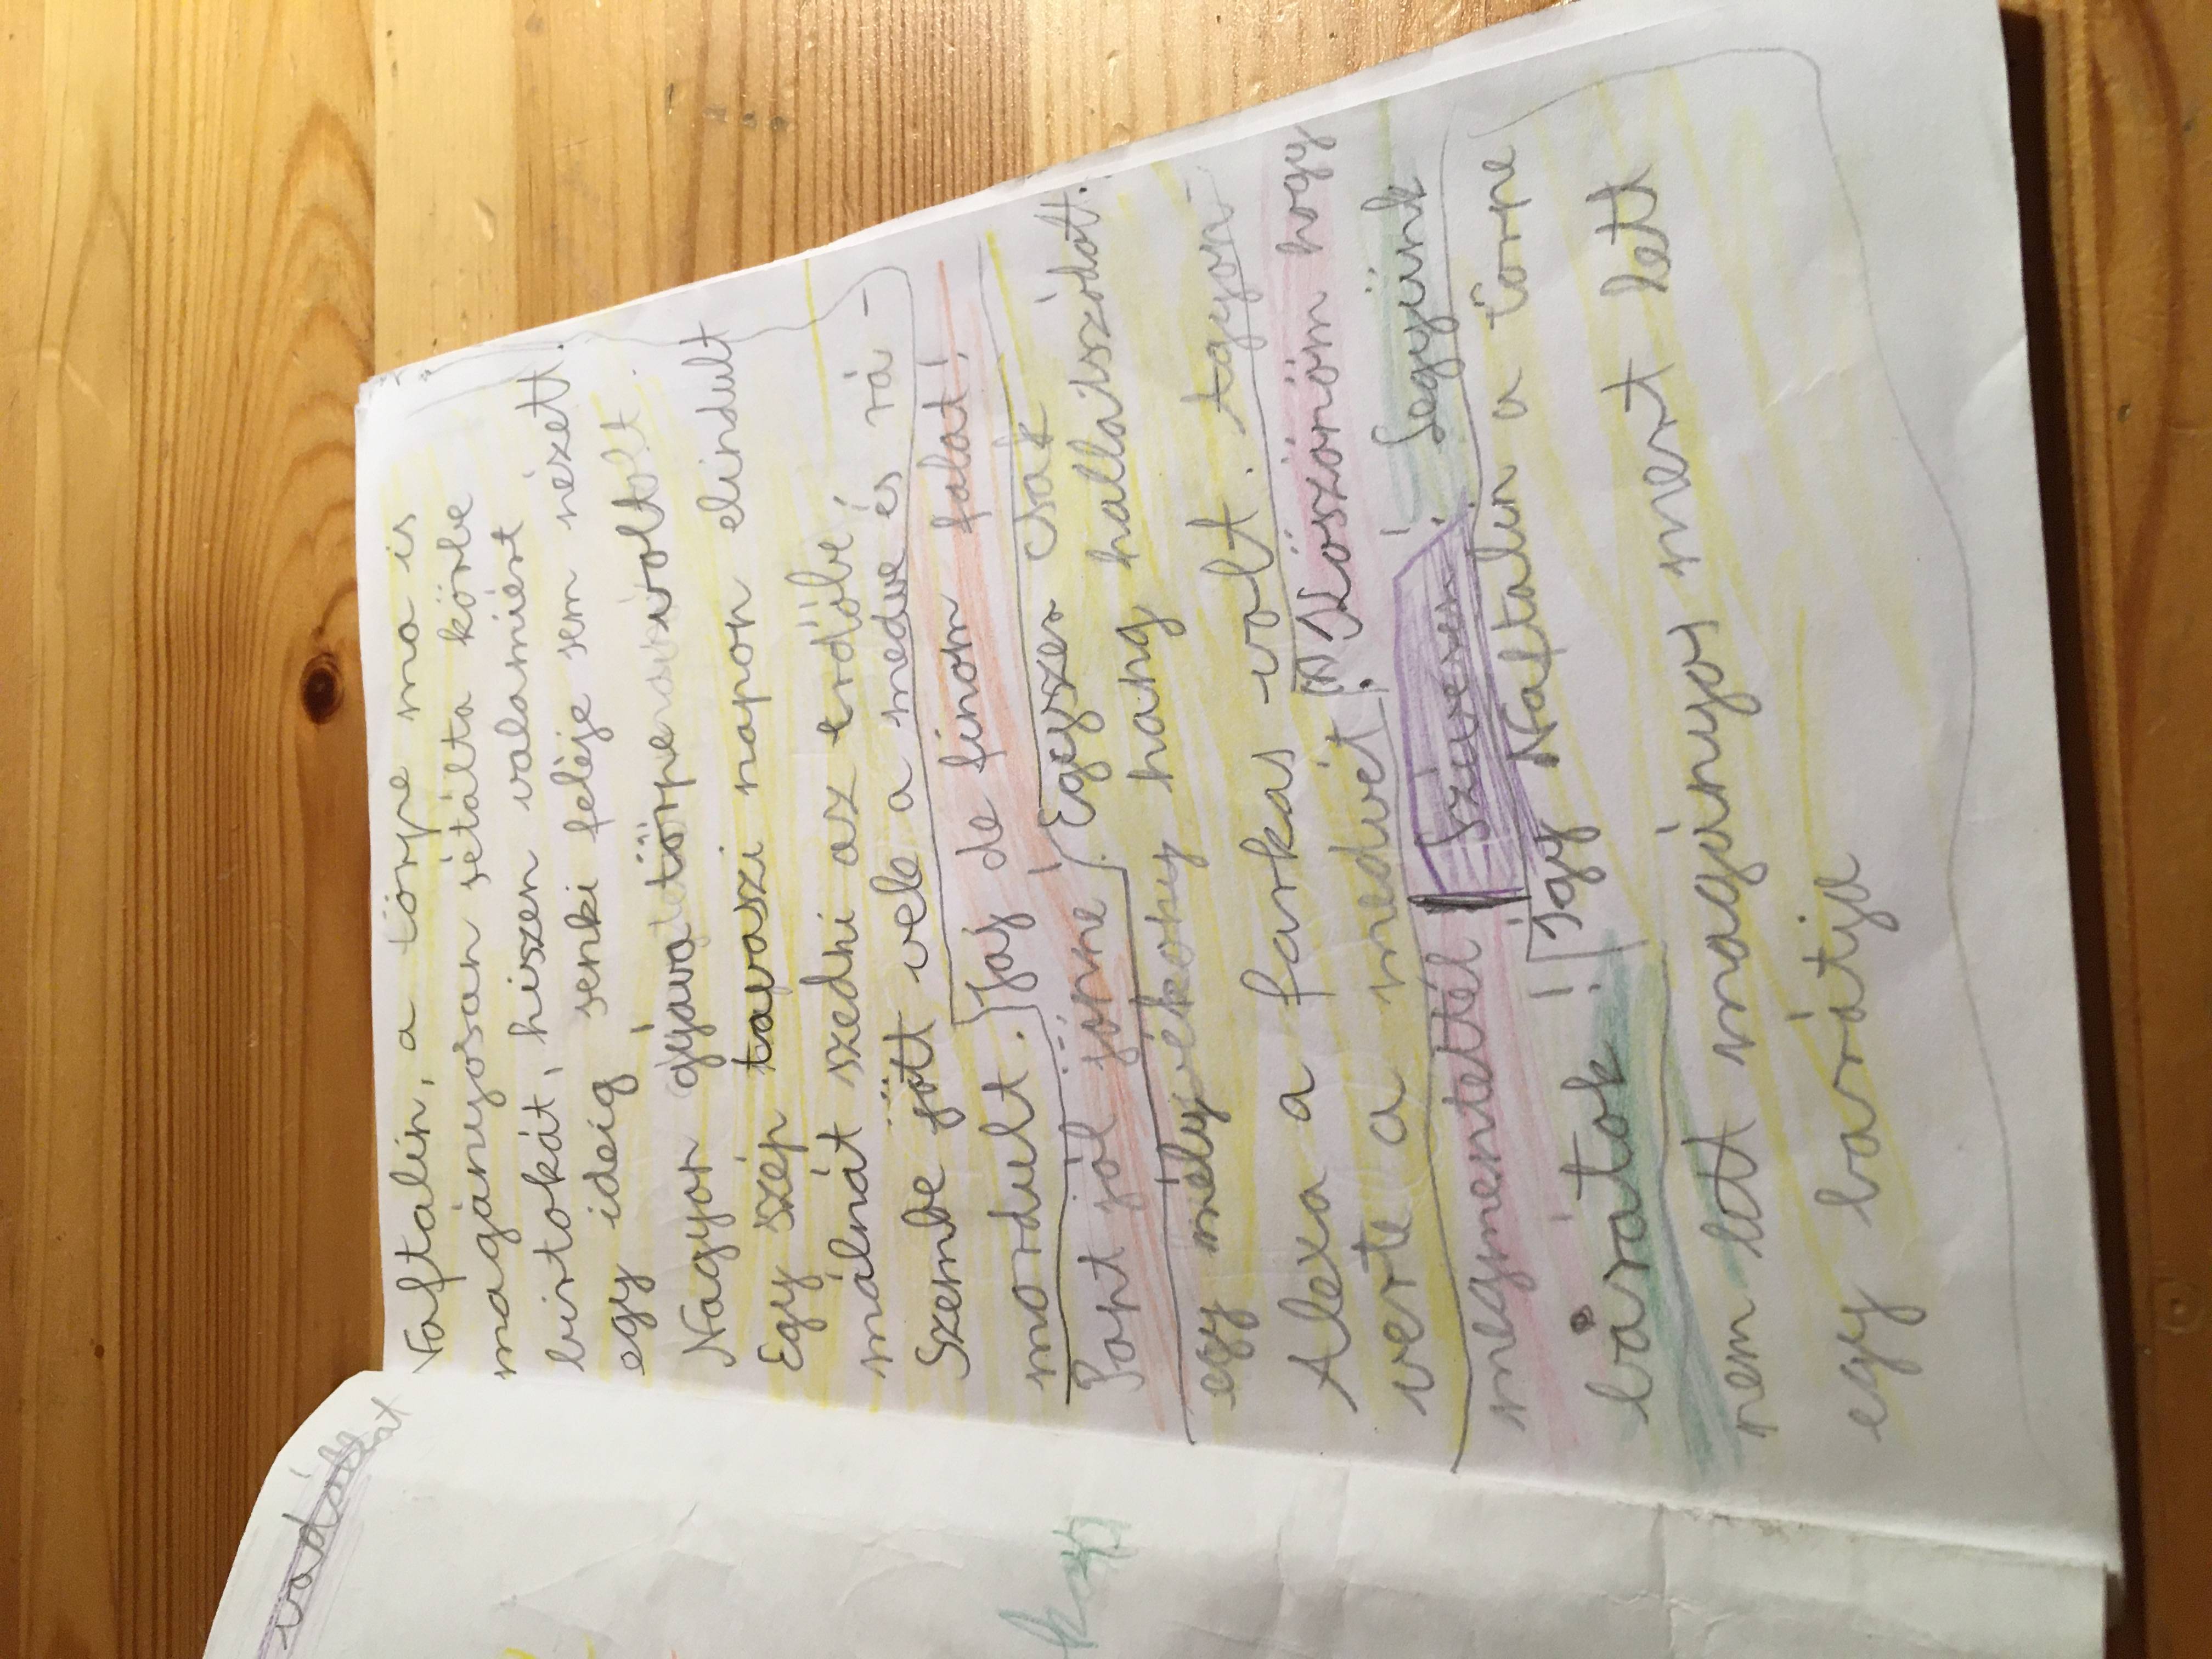 Naftalin, a törpe ma is
magányosan sétálta körbe
birtokát, hiszen valamiért
egy ideig senki feléje sem nézett.
Nagyon gyáva törpe volt.
Egy szép tavaszi napon elindult
málnát szedni az erdőbe,
Szembe jött vele a medve és rá-
mordult. Jaj de finom falat!
Popt jól jönne! Egyszer csak
egy mély vékony hang hallatszódott.
Alexa a farkas volt. Agyon-
verte a medvét. Köszönöm hogy
megmentettél! Szívesen! Legyünk
barátok! Így Naftalin a törpe
nem lett magányos mert lett
egy barátja
vadállat